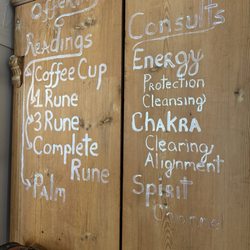 Offer
Readings
Coffee Cup
1 Rune
3 Rune
Complete
Rune
Palm
Consults
Energy
Protection
Cleansing
Chakra
Clearing
Alignment
Spirit